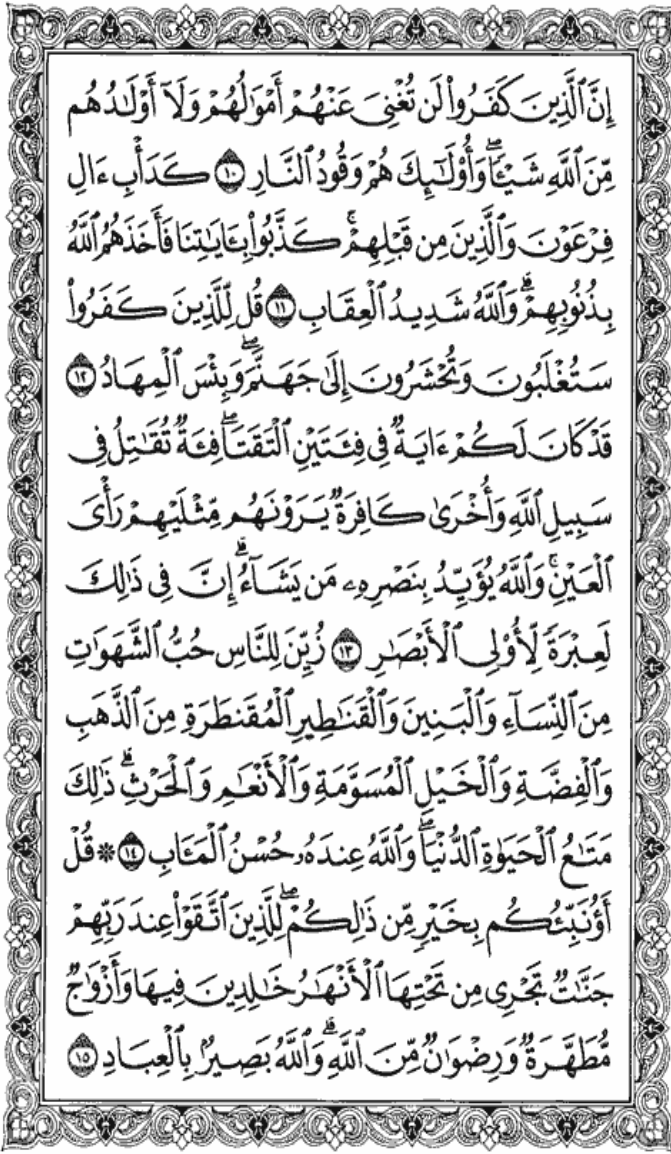 إِنَّ ٱلَّذِينَ كَفَرُوا۟ لَن تُغْنِىَ عَنْهُمْ أَمْوَٰلُهُمْ وَلَآ أَوْلَـٰدُهُم
مِّنَ ٱللَّهِ شَيْـًٔا ۖ وَأُو۟لَـٰٓئِكَ هُمْ وَقُودُ ٱلنَّارِ ١٠ كَدَأْبِ ءَالِ
فِرْعَوْنَ وَٱلَّذِينَ مِن قَبْلِهِمْ ۚ كَذَّبُوا۟ بِـَٔايَـٰتِنَا فَأَخَذَهُمُ ٱللَّهُ
بِذُنُوبِهِمْ ۗ وَٱللَّهُ شَدِيدُ ٱلْعِقَابِ ١١ قُل لِّلَّذِينَ كَفَرُوا۟
سَتُغْلَبُونَ وَتُحْشَرُونَ إِلَىٰ جَهَنَّمَ ۚ وَبِئْسَ ٱلْمِهَادُ ١٢
قَدْ كَانَ لَكُمْ ءَايَةٌ فِى فِئَتَيْنِ ٱلْتَقَتَا ۖ فِئَةٌ تُقَـٰتِلُ فِى
سَبِيلِ ٱللَّهِ وَأُخْرَىٰ كَافِرَةٌ يَرَوْنَهُم مِّثْلَيْهِمْ رَأْىَ
ٱلْعَيْنِ ۚ وَٱللَّهُ يُؤَيِّدُ بِنَصْرِهِۦ مَن يَشَآءُ ۗ إِنَّ فِى ذَٰلِكَ
لَعِبْرَةً لِّأُو۟لِى ٱلْأَبْصَـٰرِ ١٣ زُيِّنَ لِلنَّاسِ حُبُّ ٱلشَّهَوَٰتِ
مِنَ ٱلنِّسَآءِ وَٱلْبَنِينَ وَٱلْقَنَـٰطِيرِ ٱلْمُقَنطَرَةِ مِنَ ٱلذَّهَبِ
وَٱلْفِضَّةِ وَٱلْخَيْلِ ٱلْمُسَوَّمَةِ وَٱلْأَنْعَـٰمِ وَٱلْحَرْثِ ۗ ذَٰلِكَ
مَتَـٰعُ ٱلْحَيَوٰةِ ٱلدُّنْيَا ۖ وَٱللَّهُ عِندَهُۥ حُسْنُ ٱلْمَـَٔابِ ١٤ ۞ قُلْ
أَؤُنَبِّئُكُم بِخَيْرٍ مِّن ذَٰلِكُمْ ۖ لِلَّذِينَ ٱتَّقَوْا۟ عِندَ رَبِّهِمْ
جَنَّـٰتٌ تَجْرِى مِن تَحْتِهَا ٱلْأَنْهَـٰرُ خَـٰلِدِينَ فِيهَا وَأَزْوَٰجٌ
مُّطَهَّرَةٌ وَرِضْوَٰنٌ مِّنَ ٱللَّهِ ۗ وَٱللَّهُ بَصِيرٌۢ بِٱلْعِبَادِ ١٥